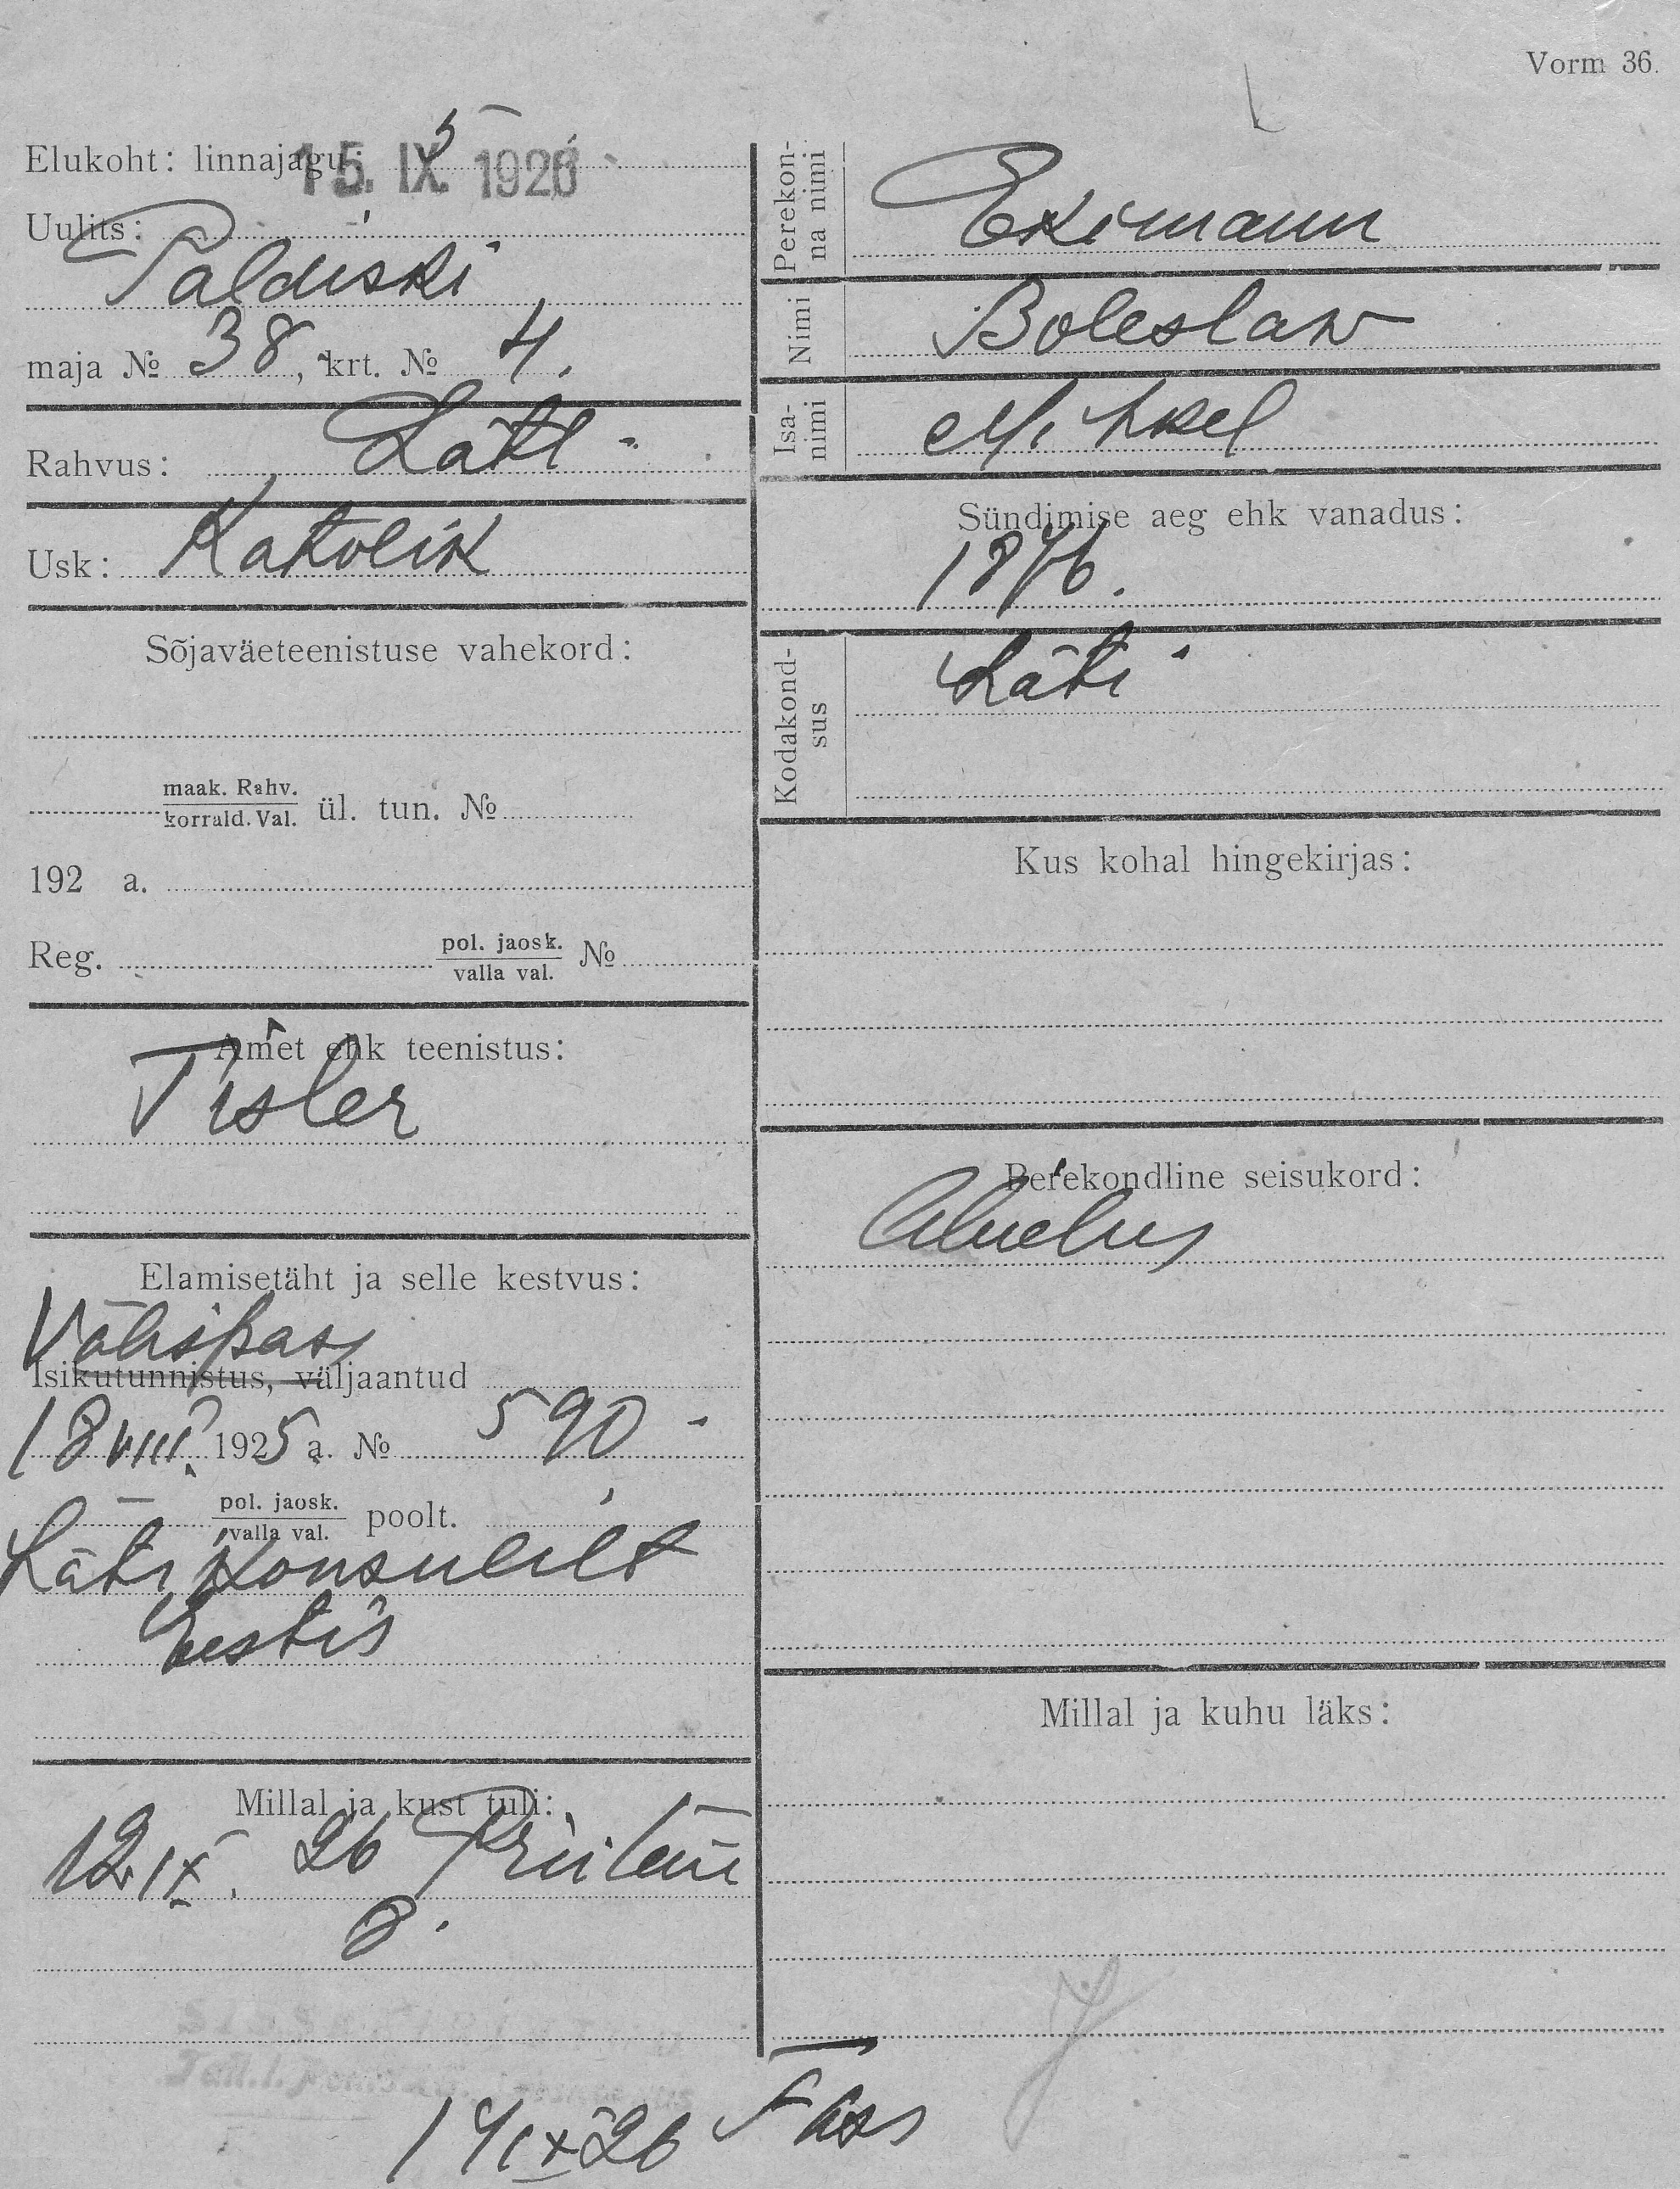 Vorm 36.
Elukoht: linnajagu: 5
15. IX. 1926
Uulits:
Paldiski
maja № 38, krt. № 4.
Rahvus: Läti
Usk: Katolik
Sõjaväeteenistuse vahekord:
maak. Rahv.
korrald. Val. ül. tun. №
192 a.
Reg. pol. jaosk.
valla val. №
Amet ehk teenistus:
Tisler
Elamisetäht ja selle kestvus:
Välispass
Isikutunnistus, väljaantud
18 VIII. 1925 a. № 590
pol. jaosk.
valla val. poolt.
Läti Konsulilt
Eestis
Millal ja kust tuli:
12. IX. 26
8.
Perekonna nimi
Ekimann
Nimi
Boleslaw
Isanimi
Mihkel
Sündimise aeg ehk vanadus:
1876.
Kodakondsus
Läti
Kus kohal hingekirjas:
Perekondline seisukord:
Abielus
Millal ja kuhu läks:
14 IX 26